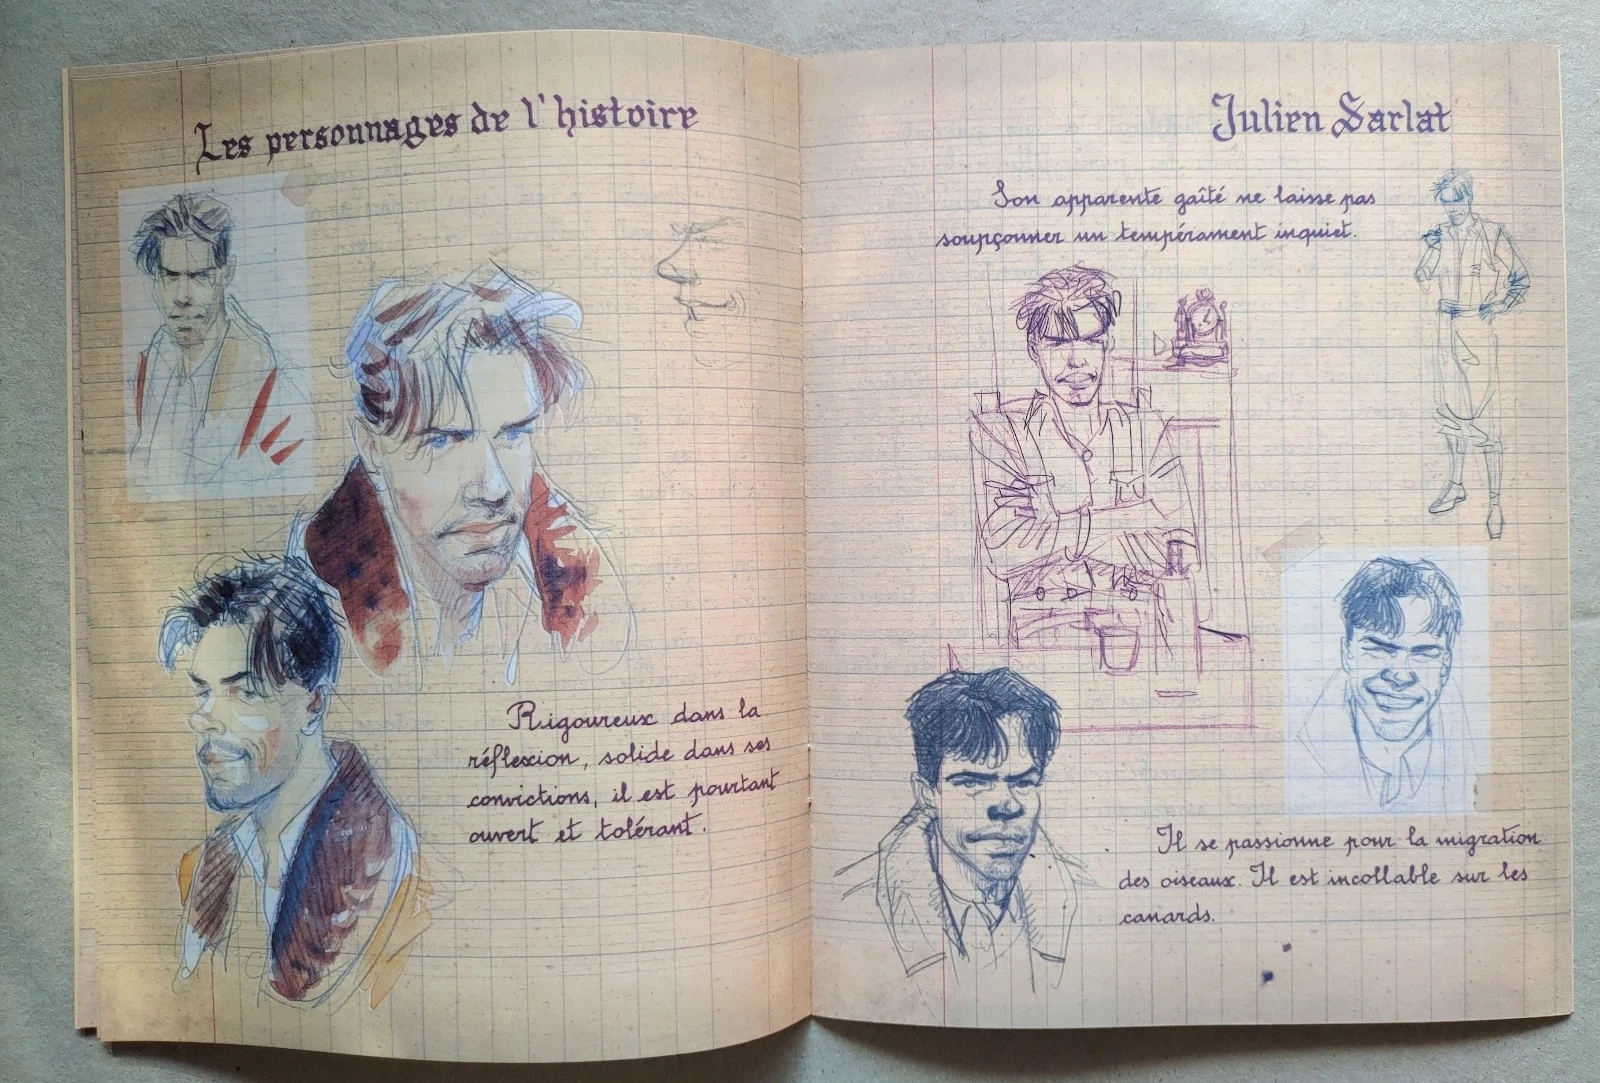 Les personnages de l'histoire
Rigoureux dans la
réflexion, solide dans ses
convictions, il est pourtant
ouvert et tolérant.
Julien Sarlat
Son apparente gaîté ne laisse pas
soupçonner un tempérament inquiet.
Il se passionne pour la migration
des oiseaux. Il est incollable sur les
canards.